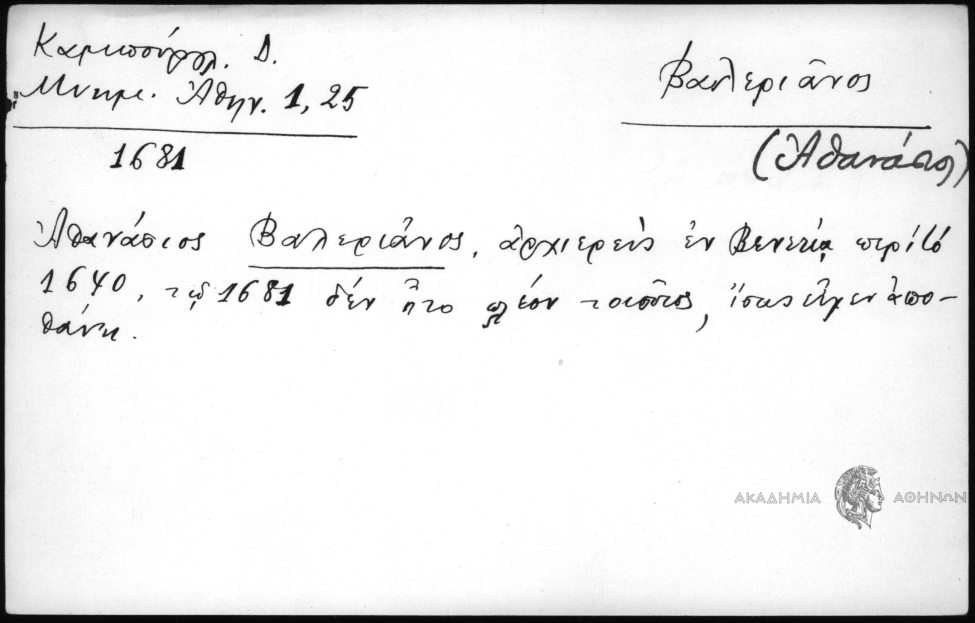 Καμπούρογλ. Δ.
Μνημ. Ἀθην. 1, 25
1681
Βαλεριᾶνος
(Ἀθανάσιος)
Ἀθανάσιος Βαλεριᾶνος, ἀρχιερεὺς ἐν Βενετίᾳ περὶ τὸ
1640, τῷ 1681 δὲν ἦτο πλέον τοιοῦτος, ἴσως εἶχεν ἀπο-
θάνει.
ΑΚΑΔΗΜΙΑ ΑΘΗΝΩΝ